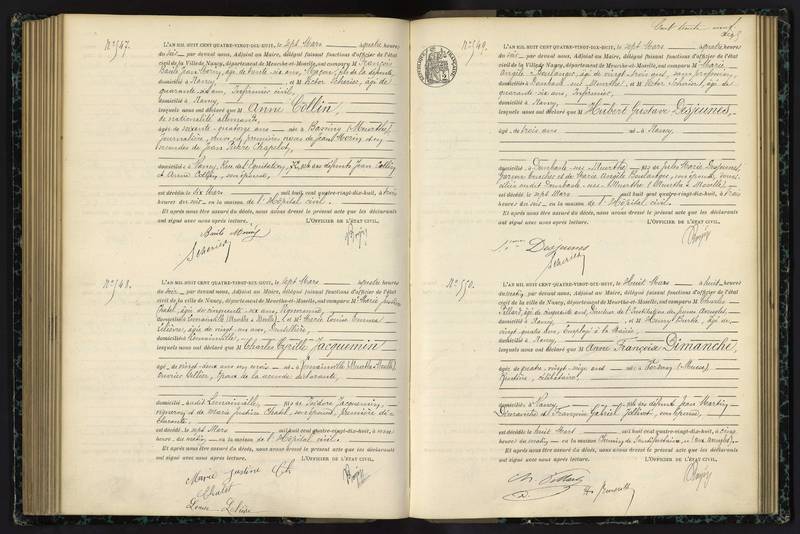 N° 547.
L'AN MIL HUIT CENT QUATRE-VINGT-DIX-HUIT, le sept Mars à quatre heures
du soir par devant nous, Adjoint au Maire, délégué faisant fonctions d'officier de l'état
civil de la ville de Nancy, département de Meurthe-et-Moselle, ont comparu M. François
domicilié à Nancy et M. Victor âgé de
quarante-six ans, Infirmier civil,
domicilié à Nancy,
lesquels nous ont déclaré que Anne Collin,
de nationalité allemande,
âgée de soixante-quatorze ans née à (Meurthe),
journalière, veuve en premières noces de Jean et en
secondes de Jean Pierre Chapelot,
domiciliée à Nancy, Rue de l'Equitation, 72, fille des défunts Jean Collin
et Anne son épouse,
est décédée le six Mars mil huit cent quatre-vingt-dix-huit, à trois
heures du soir en la maison de l'Hôpital civil.
Et après nous être assuré du décès, nous avons dressé le présent acte que les déclarants
ont signé avec nous après lecture. L'OFFICIER DE L'ÉTAT CIVIL,
N° 548.
L'AN MIL HUIT CENT QUATRE-VINGT-DIX-HUIT, le sept Mars à quatre heures
du soir par devant nous, Adjoint au Maire, délégué faisant fonctions d'officier de l'état
civil de la ville de Nancy, département de Meurthe-et-Moselle, ont comparu M. Marie Justine
Chatel, âgée de cinquante-six ans, Vigneronne,
domiciliée à Lemainville (Meurthe & Moselle) & Marie Louise Emma
Lelièvre, âgée de vingt ans, Dentellière,
domiciliée à Lemainville,
lesquels nous ont déclaré que Charles Cyrille Jacquemin
âgé de vingt-deux ans un mois né à Lemainville (Meurthe & Moselle)
Ouvrier sellier, époux de la seconde déclarante,
domicilié audit Lemainville, fils de Isidore Jacquemin,
vigneron et de Marie Justine Chatel, son épouse, première dé-
clarante.
est décédé le sept Mars mil huit cent quatre-vingt-dix-huit, à onze
heures du matin en la maison de l'Hôpital civil.
Et après nous être assuré du décès, nous avons dressé le présent acte que les déclarants
ont signé avec nous après lecture. L'OFFICIER DE L'ÉTAT CIVIL,
Marie Justine Ch
Chatel
N° 549.
L'AN MIL HUIT CENT QUATRE-VINGT-DIX-HUIT, le sept Mars à quatre heures
du soir par devant nous, Adjoint au Maire, délégué faisant fonctions d'officier de l'état
civil de la ville de Nancy, département de Meurthe-et-Moselle, ont comparu M. Marie
Angèle Boulangé, âgée de vingt-trois ans, sans profession,
domiciliée à Dombasle-sur-Meurthe & Victor âgé de
quarante-six ans, Infirmier,
domicilié à Nancy,
lesquels nous ont déclaré que Hubert Gustave Desjeunes,
âgé de trois ans né à Nancy
domicilié à Dombasle-sur-Meurthe fils de Jules Marie Desjeunes,
et de Marie Angèle Boulangé, son épouse, domi-
ciliés audit Dombasle-sur-Meurthe (Meurthe & Moselle),
est décédé le sept Mars mil huit cent quatre-vingt-dix-huit, à trois
heures du soir en la maison de l'Hôpital civil.
Et après nous être assuré du décès, nous avons dressé le présent acte que les déclarants
ont signé avec nous après lecture. L'OFFICIER DE L'ÉTAT CIVIL,
Desjeunes
N° 550.
L'AN MIL HUIT CENT QUATRE-VINGT-DIX-HUIT, le Huit Mars à huit heures
du matin, par devant nous, Adjoint au Maire, délégué faisant fonctions d'officier de l'état
civil de la ville de Nancy, département de Meurthe-et-Moselle, ont comparu M. Charles
âgé de cinquante ans, Docteur de l'Institution des jeunes Aveugles,
domicilié à Nancy, et M. Henry âgé de
vingt-quatre ans, Employé à la Mairie,
domicilié à Nancy,
lesquels nous ont déclaré que Anne Françoise Dimanche,
âgée de quatre-vingt-seize ans née à (Meuse)
Rentière, célibataire,
domiciliée à Nancy fille des défunts Jean Martin
Dimanche et Françoise Gabriel son épouse,
est décédée le huit Mars mil huit cent quatre-vingt-dix-huit, à cinq
heures du matin en la maison
Et après nous être assuré du décès, nous avons dressé le présent acte que les déclarants
ont signé avec nous après lecture. L'OFFICIER DE L'ÉTAT CIVIL,